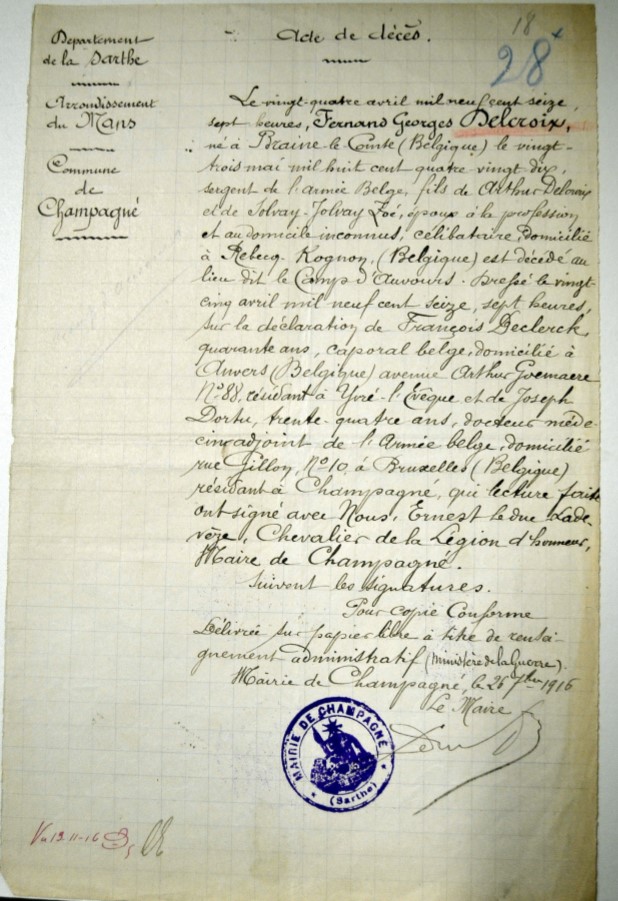 Département
de la Sarthe
Arrondissement
du Mans
Commune
de
Champagné
Acte de décès.
18
28
Le vingt-quatre avril mil neuf cent seize,
sept heures, Fernand Georges Delcroix,
né à Braine-le-Comte (Belgique) le vingt-
trois mai mil huit cent quatre vingt dix,
sergent de l'armée Belge, fils de Arthur Delcroix
et de Solvay-Jolvay Zoé, époux à la profession
et au domicile inconnus, célibataire, domicilié
à Rebecq-Rognon, (Belgique) est décédé au
lieu dit le Camp d'Auvours. Dressé le vingt-
cinq avril mil neuf cent seize, sept heures,
sur la déclaration de François Declerck,
quarante ans, caporal belge, domicilié à
Anvers (Belgique) avenue Arthur Goemaere
N° 88, résidant à Yvré-l'Evêque et de Joseph
Dortu, trente-quatre ans, docteur méde-
cin adjoint de l'Armée belge, domicilié
rue Gillon, N° 10, à Bruxelles (Belgique)
résidant à Champagné, qui lecture faite
ont signé avec Nous, Ernest le duc Lade-
vèze, Chevalier de la Légion d'honneur,
Maire de Champagné.
Suivent les signatures.
Pour copie Conforme
Délivrée sur papier libre à titre de rensei-
gnement administratif (Ministère de la Guerre).
Mairie de Champagné, le 26 7bre 1916
Le Maire
MAIRIE DE CHAMPAGNÉ
(Sarthe)
Vu 12-11-16